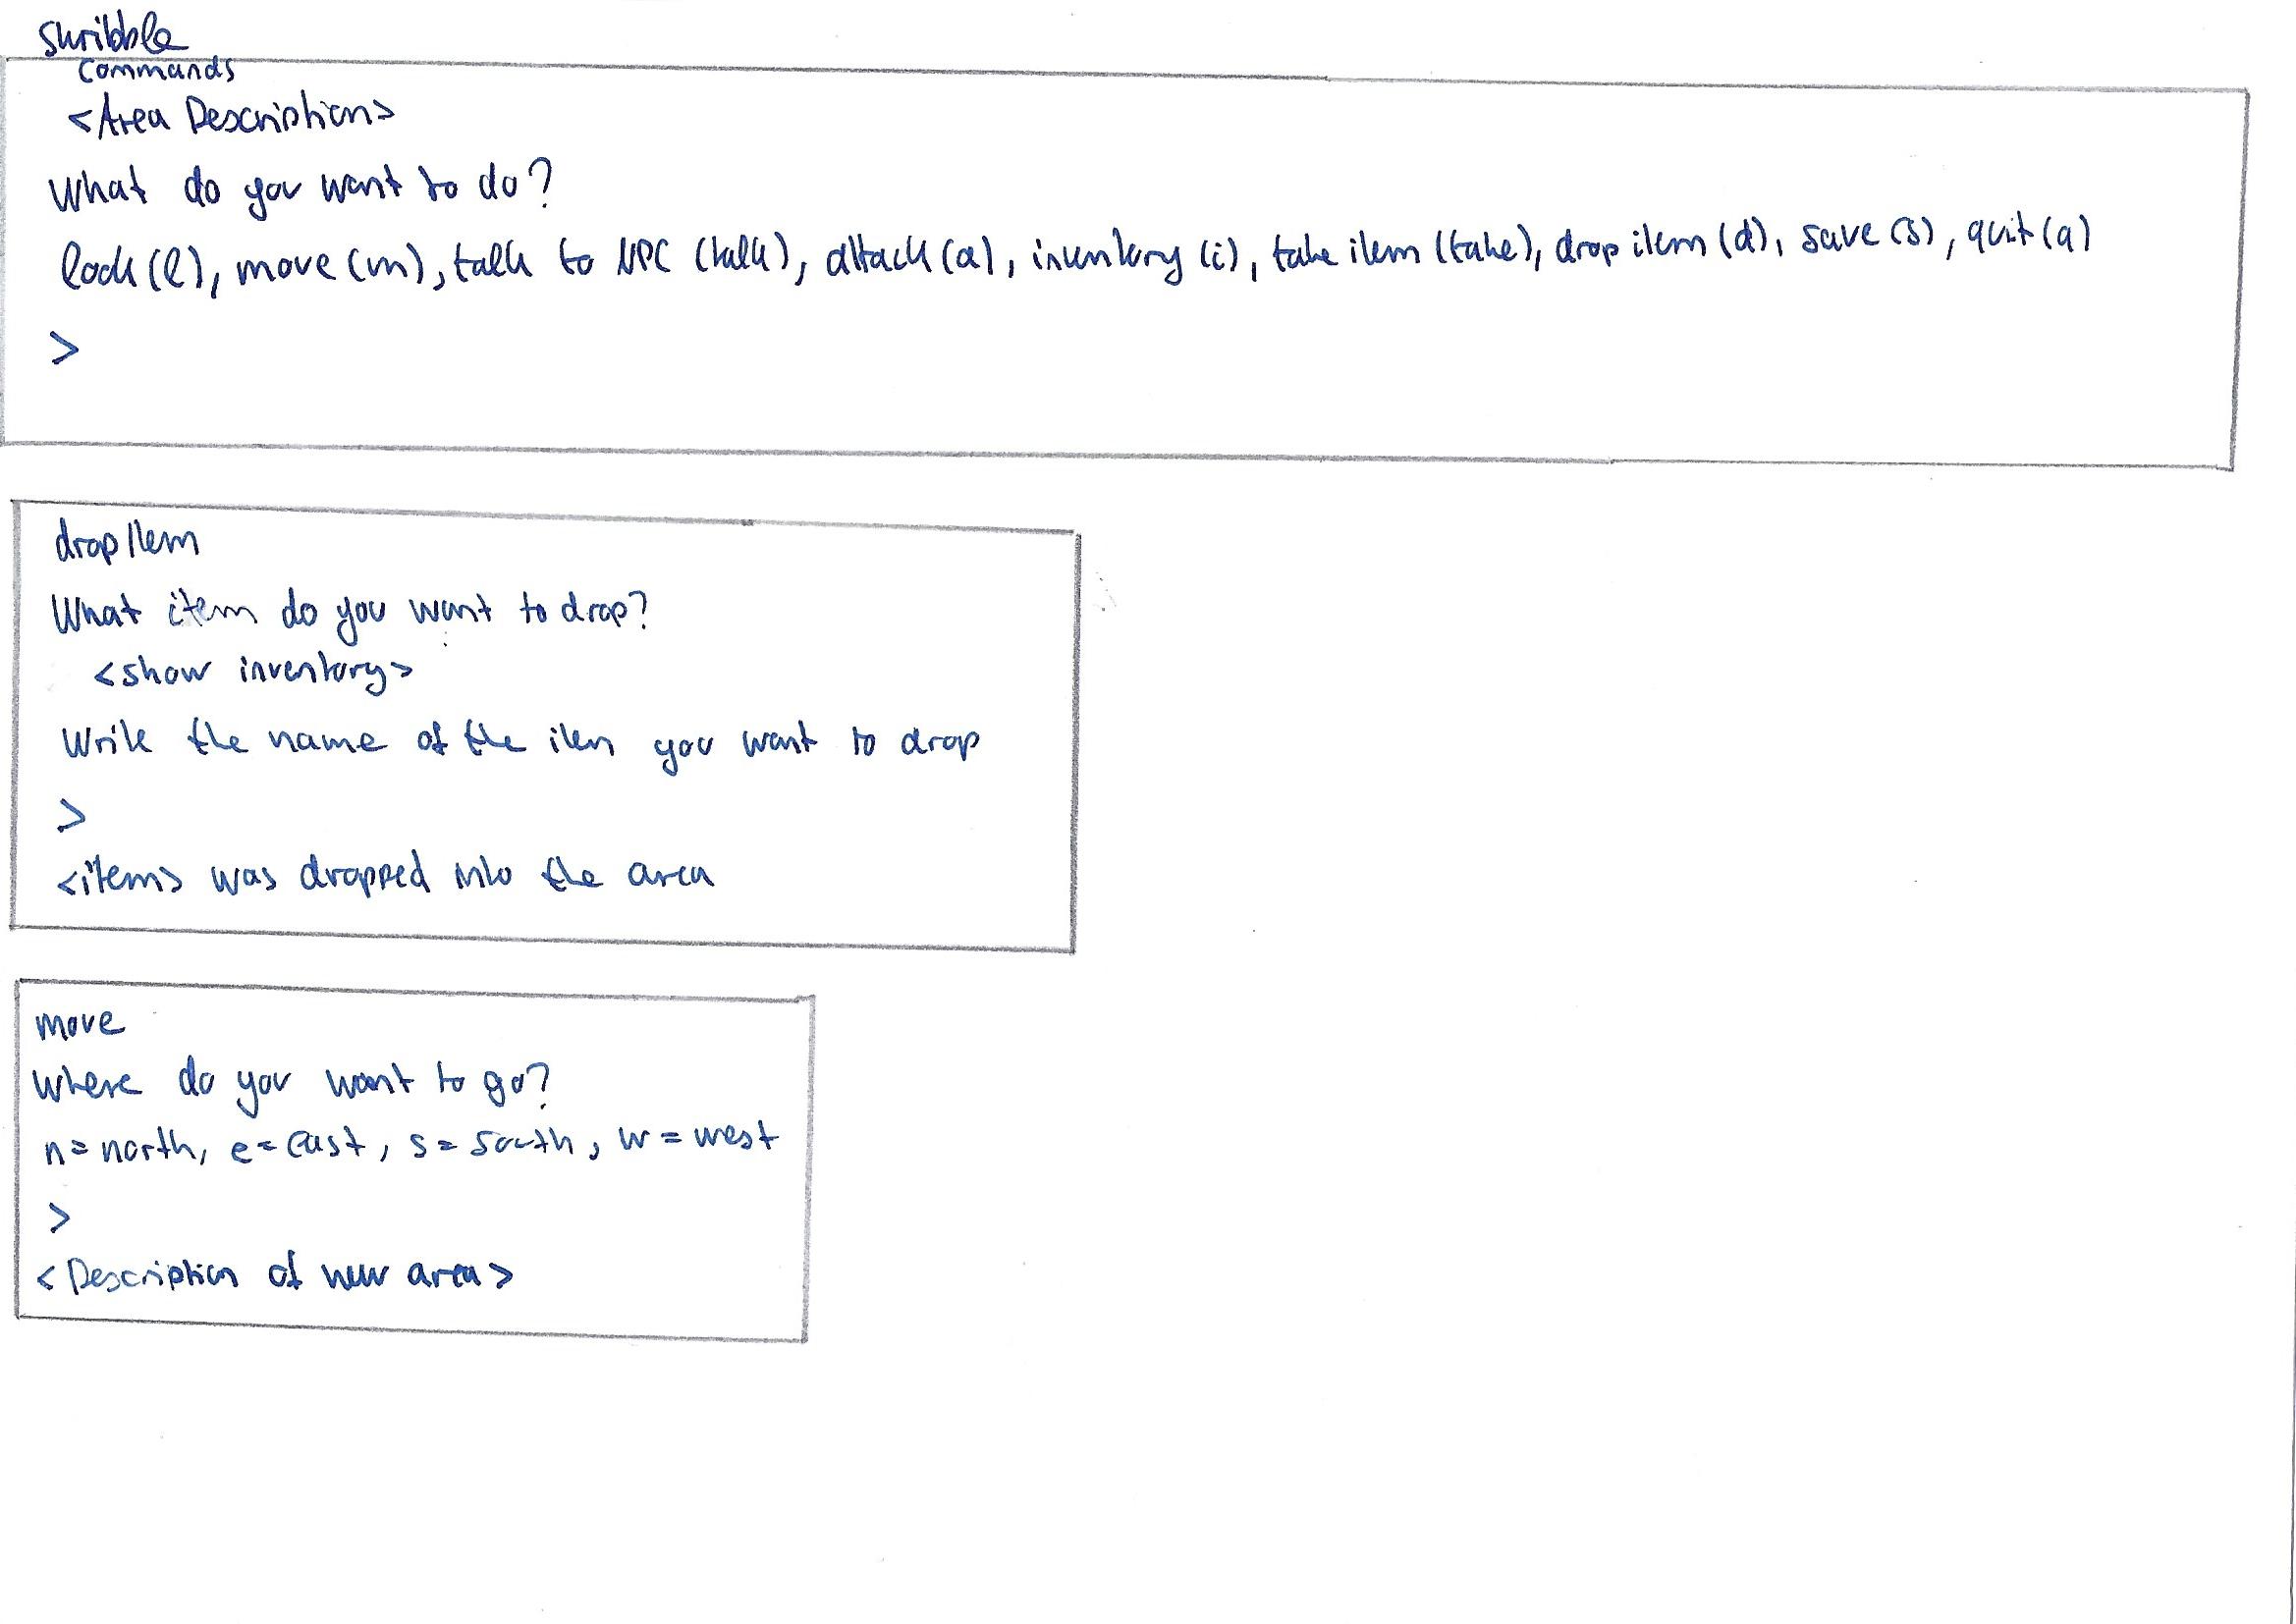 skribble
commands
<Area Description>
What do you want to do?
look (l), move (m), talk to NPC (talk), attack (a), inventory (i), take item (take), drop item (d), save (s), quit (q)
>
drop Item
What item do you want to drop?
<show inventory>
Write the name of the item you want to drop
>
<item> was dropped into the area
move
Where do you want to go?
n = north, e = east, s = south, w = west
>
<Description of new area>